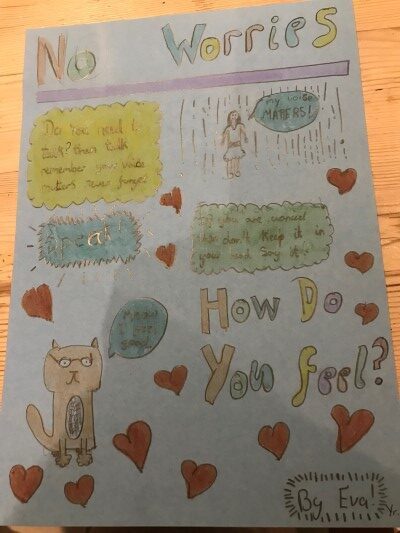 No Worries
Do you need to
talk? then talk
remember your voice
matters never forget
my voice
MATTERS!
Speak!
If you are worried
then don't keep it in
your head Say it!
How Do
You feel?
Meow
I feel
good
By Eva!